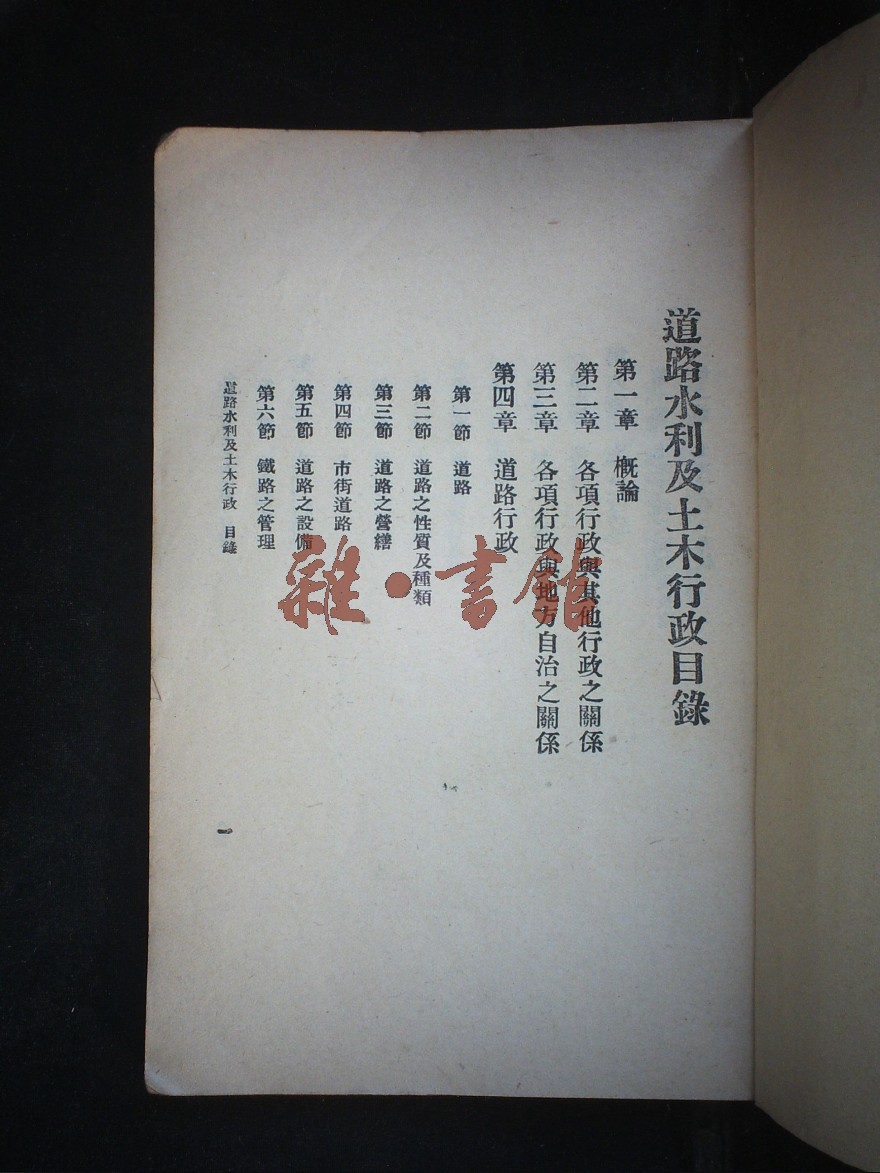 道路水利及土木行政目錄
第一章 概論
第二章 各項行政與其他行政之關係
第三章 各項行政與地方自治之關係
第四章 道路行政
第一節 道路
第二節 道路之性質及種類
第三節 道路之營繕
第四節 市街道路
第五節 道路之設備
第六節 鐵路之管理
道路水利及土木行政 目錄
一
雜·書館